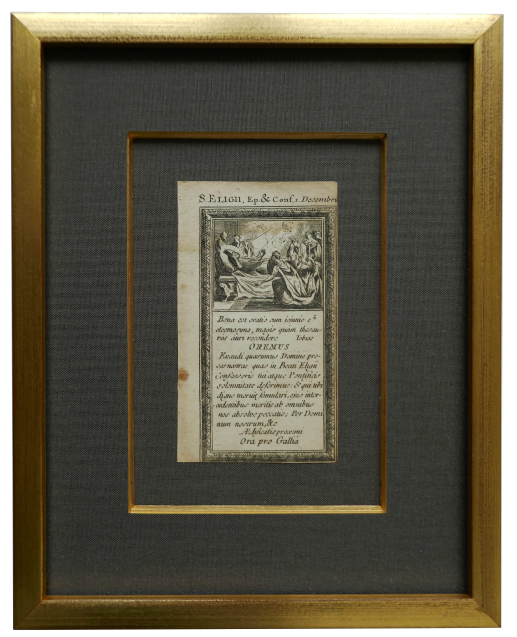 S. ELIGII, Ep. & Conf. 1. Decembris
Bona est oratio cum ieiunio et
eleemosyna, magis quam thesau-
ros auri recondere Tobias
OREMUS
Exaudi quæsumus Domine pre-
ces nostras quas in Beati Eligii
Confessoris tui atque Pontificis
solemnitate deferimus: & qui tibi
digne meruit famulari, ejus inter-
cedentibus meritis ab omnibus
nos absolve peccatis; Per Domi
num nostrum, &c
proximi
Ora pro Gallia